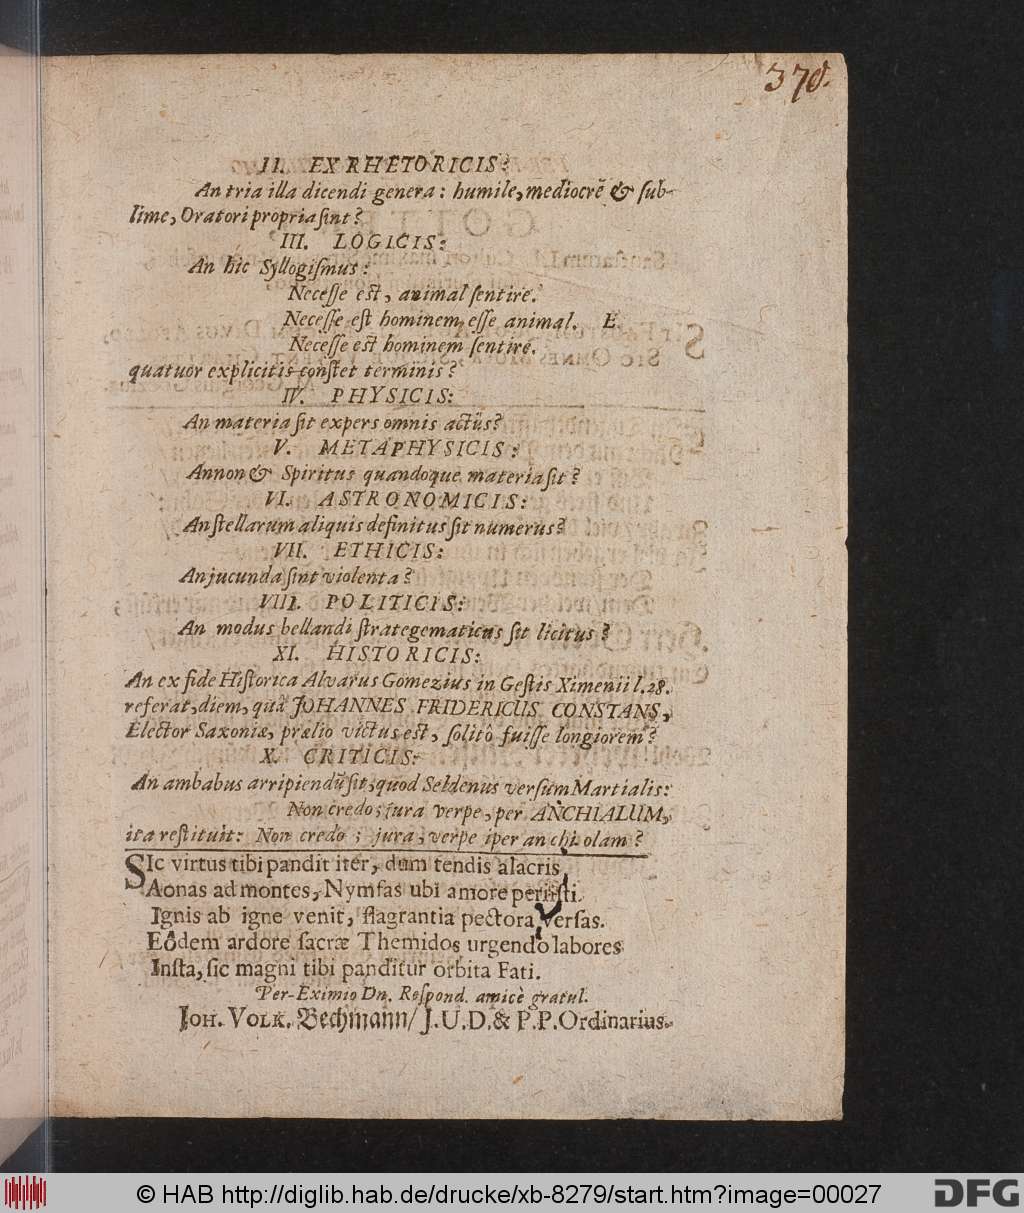 370.
II. EX RHETORICIS?
An tria illa dicendi genera: humile, mediocrē & sub-
lime, Oratori propria sint?
III. LOGICIS:
An hic Syllogismus:
Necesse est, animal sentire.
Necesse est hominem esse animal. E.
Necesse est hominem sentire.
quatuor explicitis constet terminis?
IV. PHYSICIS:
An materia sit expers omnis actûs?
V. METAPHYSICIS:
Annon & Spiritus quandoque materia sit?
VI. ASTRONOMICIS:
An stellarum aliquis definitus sit numerus?
VII. ETHICIS:
An jucunda sint violenta?
VIII. POLITICIS:
An modus bellandi strategematicus sit licitus?
XI. HISTORICIS:
An ex fide Historica Alvarus Gomezius in Gestis Ximenii l. 28.
referat, diem, quâ JOHANNES FRIDERICUS CONSTANS,
Elector Saxoniæ, prælio victus est, solitô fuisse longiorem?
X. CRITICIS:
An ambabus arripiendū sit, quod Seldenus versum Martialis:
Non credo; jura verpe, per ANCHIALUM,
ita restituit: Non credo; jura, verpe iper an chi olam?
SIc virtus tibi pandit iter, dum tendis alacris
Aonas ad montes, Nymfas ubi amore periisti.
Ignis ab igne venit, flagrantia pectora versas.
Eôdem ardore sacræ Themidos urgendo labores
Insta, sic magni tibi panditur orbita Fati.
Per-Eximio Dn. Respond. amicè gratul.
JOH. VOLK. Bechmann/ J.U.D. & P.P. Ordinarius.
© HAB http://diglib.hab.de/drucke/xb-8279/start.htm?image=00027
DFG